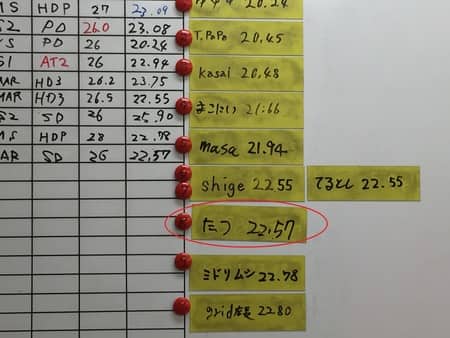 MS HDP 27 23.09
S2 PD 26.0 23.08
PD 26 20.24
S1 AT2 26 22.94
MAR HD3 26.2 23.75
MAR HD3 26.5 22.55
SD 26 25.90
MS HDP 28 22.78
MAR SD 26 22.57
20.24
T.PaPa 20.45
Kasai 20.48
まこにい 21.66
masa 21.94
shige 22.55 てるとし 22.55
たつ 22.57
ミドリムシ 22.78
grid 22.80